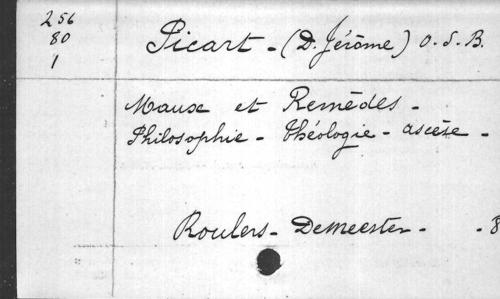 256
80
1
Picart - (D. Jérôme) O. S. B.
Maux et Remèdes -
Philosophie - théologie - ascèse -
Roulers - Demeester - - 8